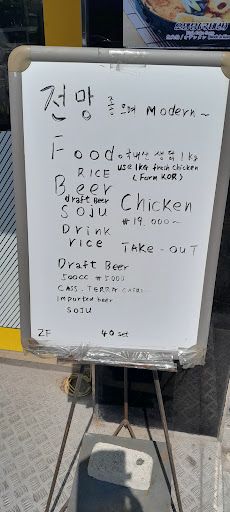 전망 좋으며 modern ~
Food 국내산 생닭 1kg
RICE use 1kg fresh chicken
Beer (Farm KOR)
draft Beer Chicken
SOJU ₩19,000~
Drink
rice TAKE-OUT
Draft Beer
500cc ₩5000
CASS. TERRA
Imported beer
SOJU
2F 40 set